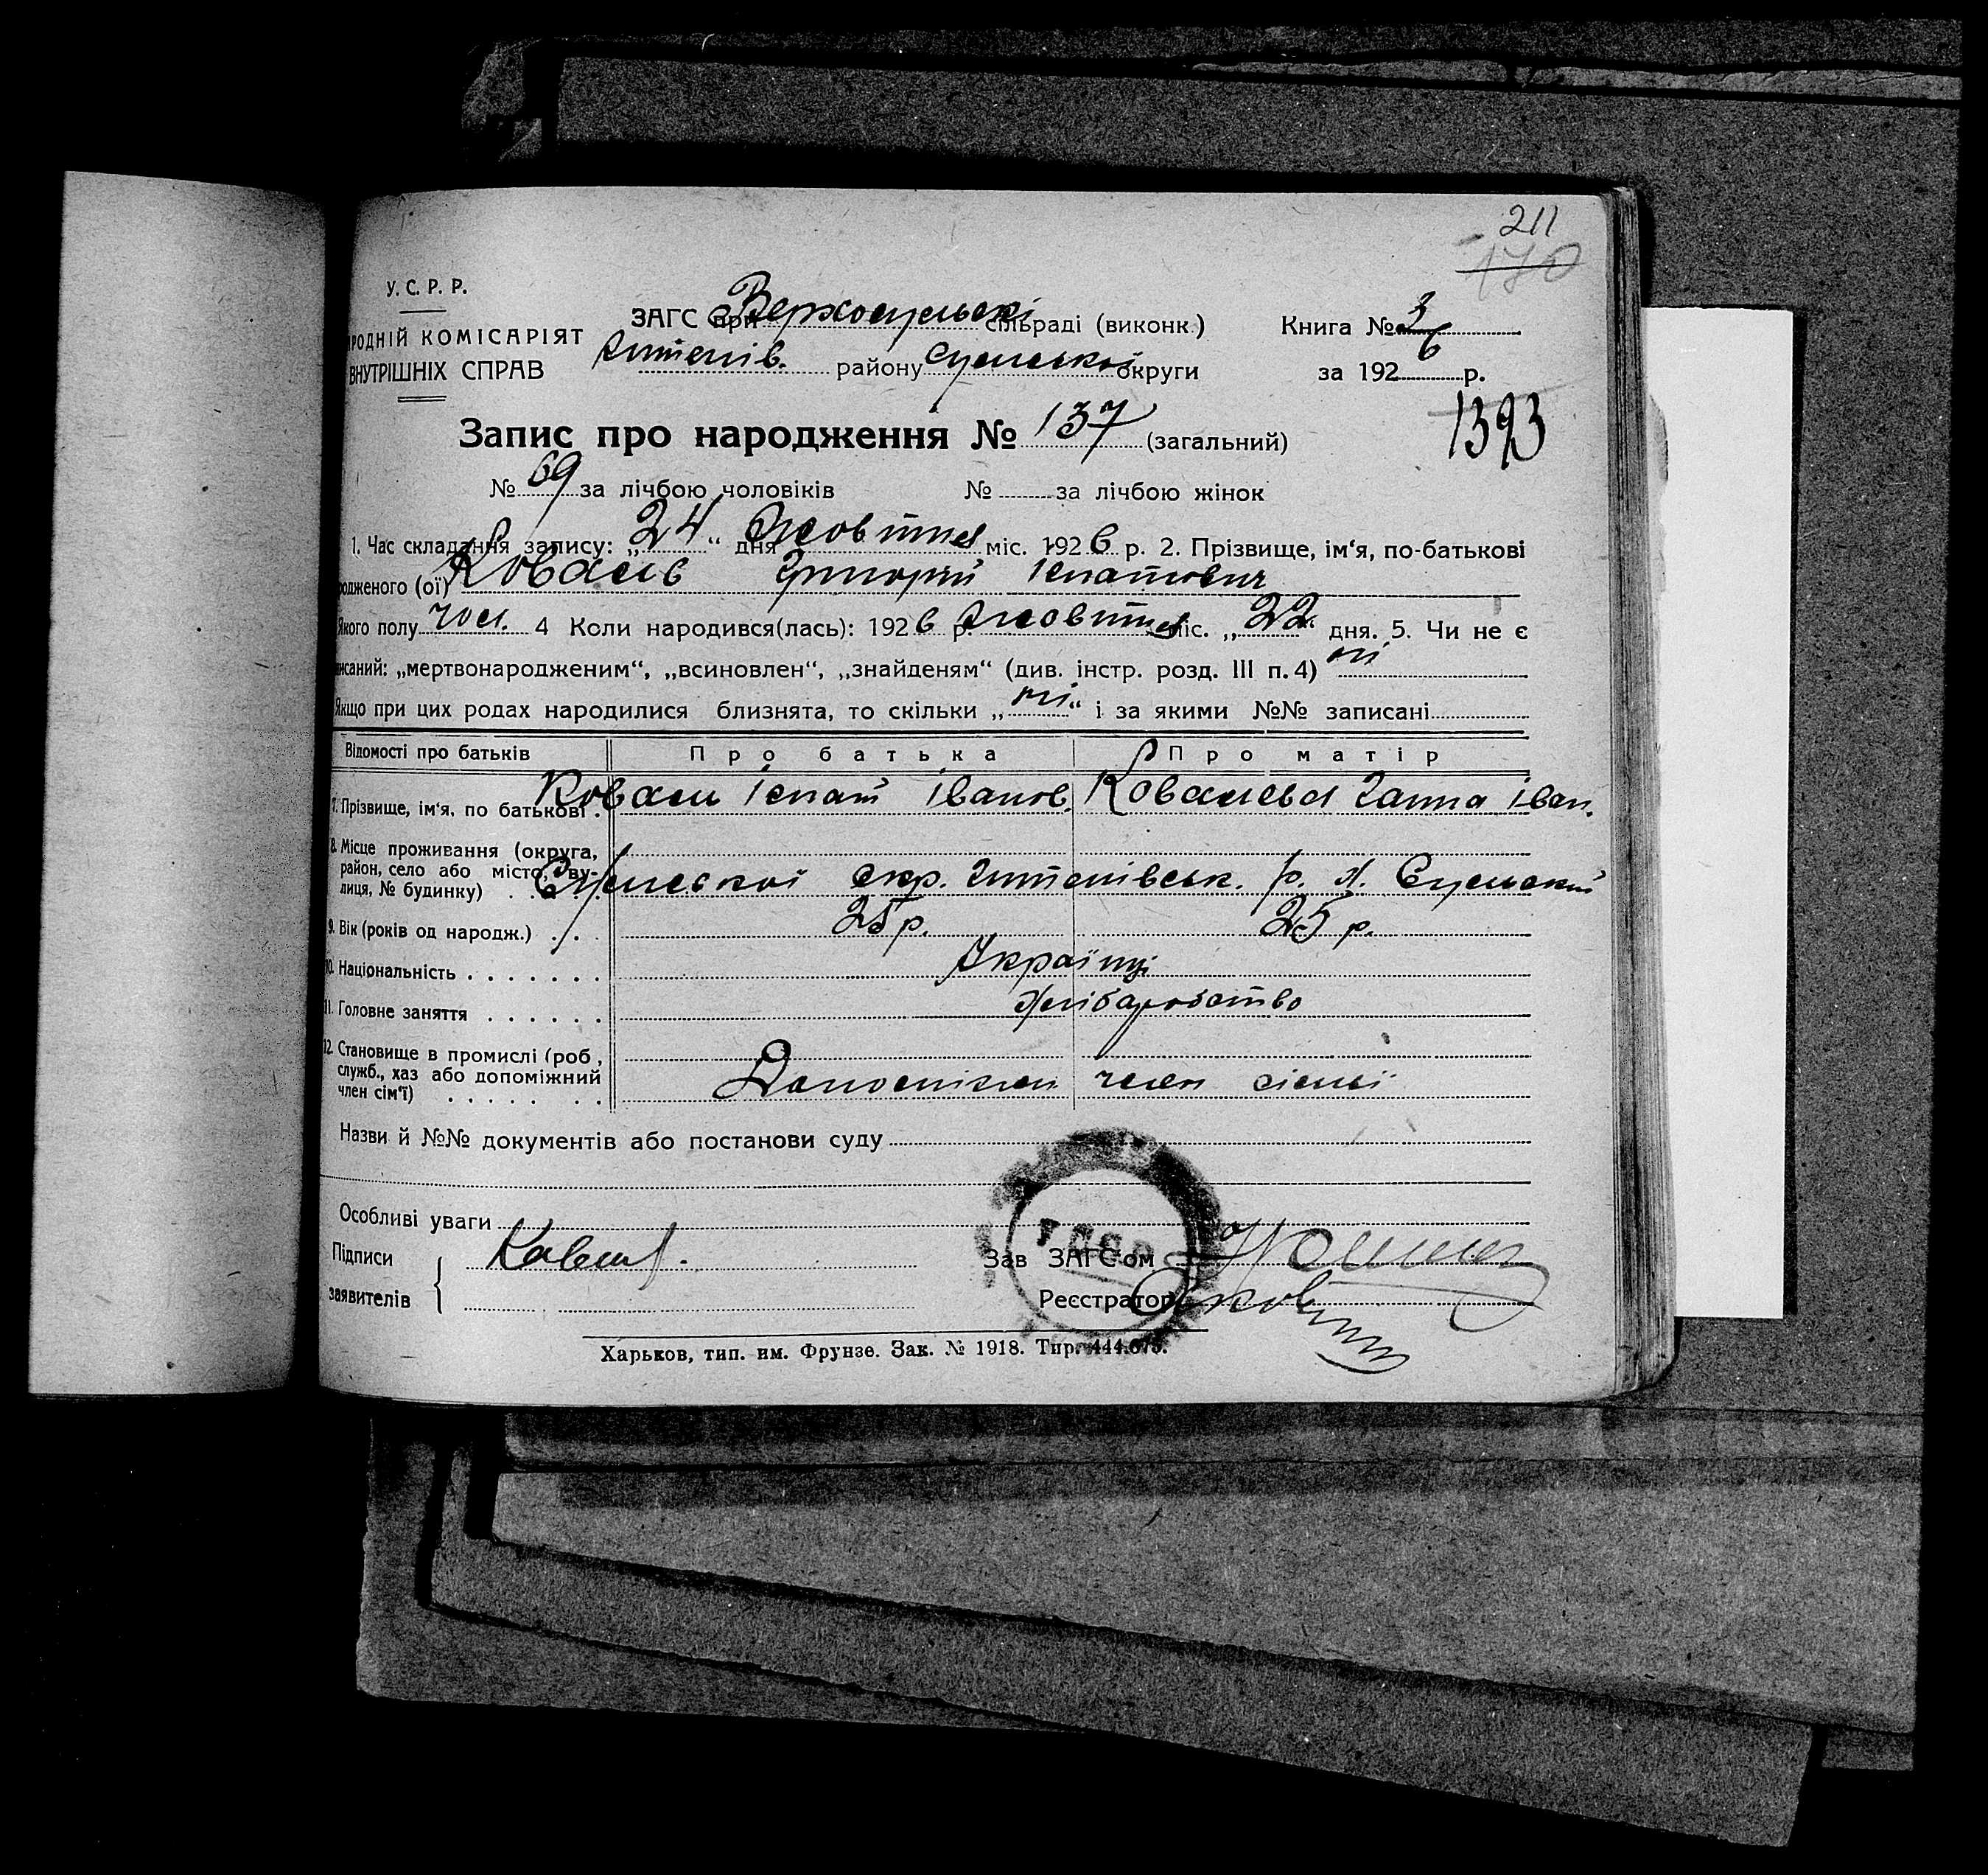 211
170
У. С. Р. Р.
РОДНІЙ КОМІСАРІЯТ
ВНУТРІШНІХ СПРАВ
ЗАГС при Верхосульскі сільраді (виконк.)
Книга № 3
району Сумської округи
за 1926 р.
1393
Запис про народження № 137 (загальний)
№ 69 за лічбою чоловіків № за лічбою жінок
1. Час складання запису: „24“ дня Жовтня міс. 1926 р. 2. Прізвище, ім‘я, по-батькові
родженого (ої) Коваль Григорій Ігнатович
Якого полу чол. 4 Коли народився(лась): 1926 р. Жовтня міс. „22“ дня. 5. Чи не є
писаний: „мертвонародженим“, „всиновлен“, „знайденям“ (див. інстр. розд. III п. 4) ні
Якщо при цих родах народилися близнята, то скільки „ні“ і за якими №№ записані
Відомості про батьків Про батька Про матір
7. Прізвище, ім‘я, по батькові . Коваль Ігнат Іванов. Ковальова Ганна Іван.
8. Місце проживання (округа,
район, село або місто, ву-
лиця, № будинку) . . . Сумської окр. р.
9. Вік (років од народж.) . . . 25 р. 25 р.
10. Національність . . . . . . . Українці
11. Головне заняття . . . . . . Хліборобство
12. Становище в промислі (роб.,
служб., хаз або допоміжний
член сім‘ї) . . . . . . . член сімьї
Назви й №№ документів або постанови суду
Особливі уваги
Підписи
заявителів
Коваль
УСРР
Зав ЗАГС‘ом
Реєстратор
Харьков, тип. им. Фрунзе. Зак. № 1918. Тир. 444.675.